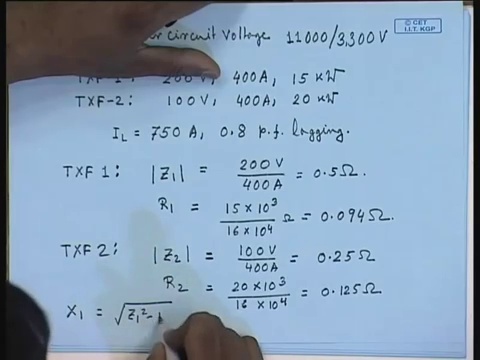 circuit Voltage 11000/3,300V
© CET
I.I.T. KGP
TXF-1: 200V, 400A, 15 kW
TXF-2: 100V, 400A, 20 kW
I_L = 750 A, 0.8 p.f. lagging.
TXF 1: |Z₁| = 200 V / 400 A = 0.5Ω.
R₁ = 15 × 10³ / 16 × 10⁴ Ω = 0.094Ω.
TXF 2: |Z₂| = 100V / 400A = 0.25Ω
R₂ = 20 × 10³ / 16 × 10⁴ = 0.125Ω
X₁ = √Z₁² -